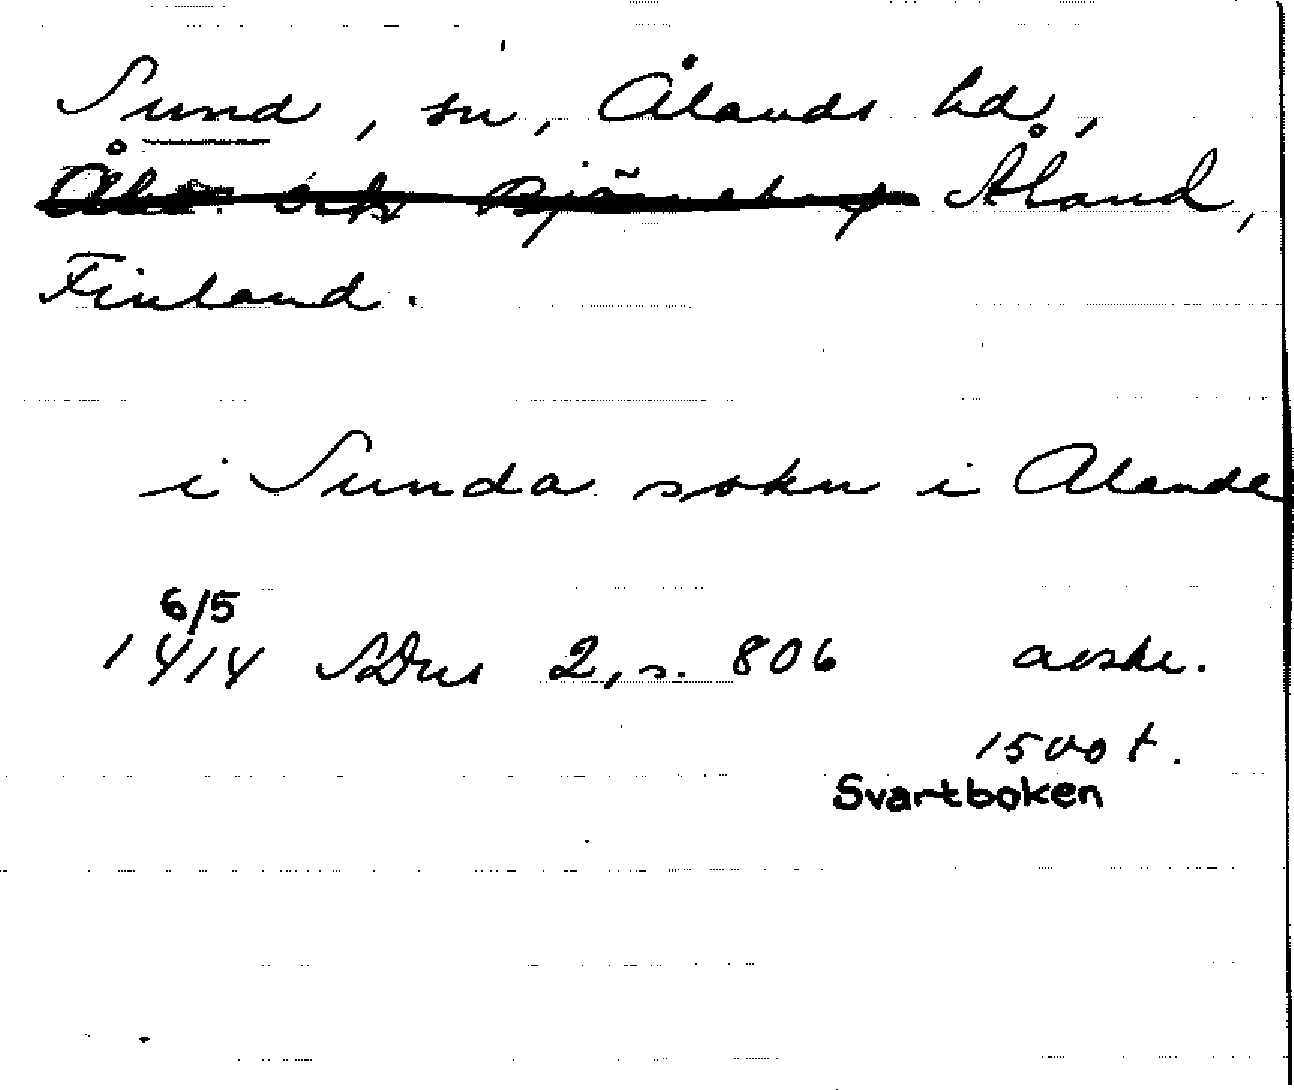 Sund, sn, Ålands hd,
Åbo och Björneborg Åland,
Finland.
i Sunda sokn i Alande
6/5
1414 SDns 2, s. 806 avskr.
1500 t.
Svartboken